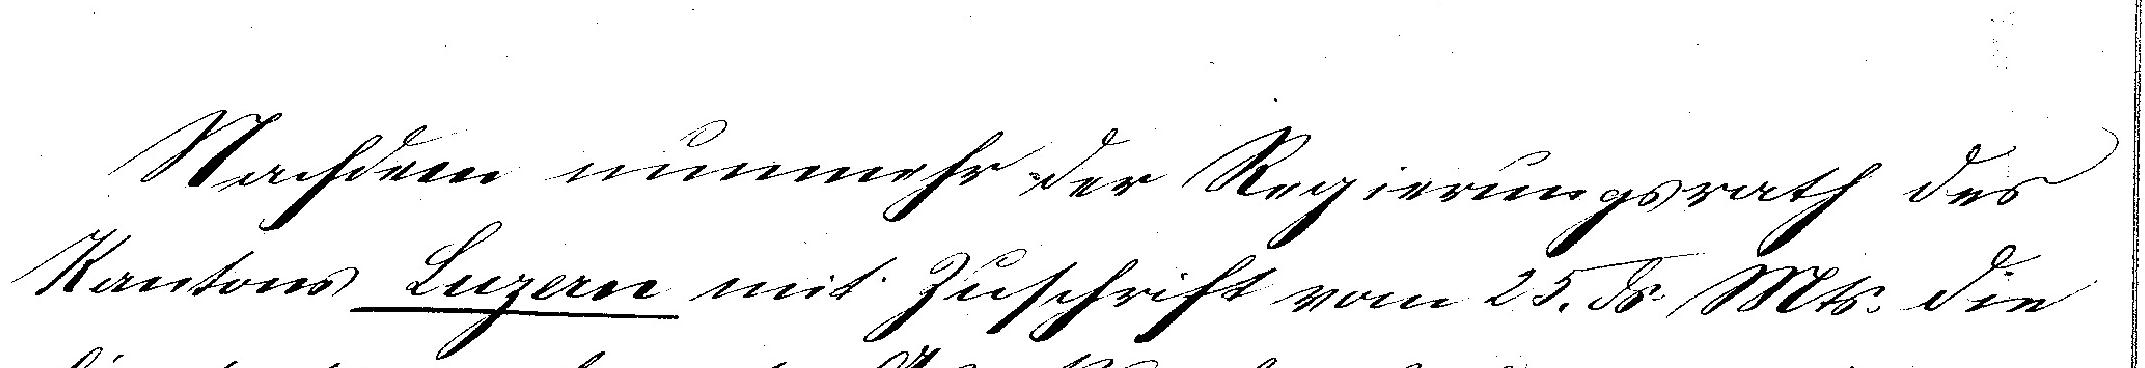 Nachdem nunmehr der Regierungsrath des
Kantons Luzern mit Zuschrift vom 25. ds. Mts. die